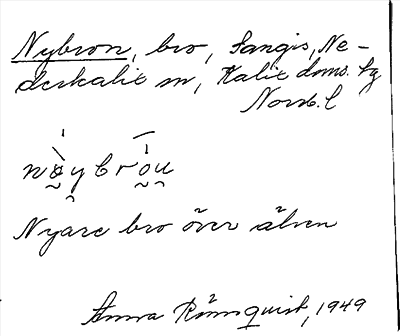 Nybron, bro, Sangis, Ne-
derkalix sn, Kalix doms. hg
Norrb. l
Nyare bro över älven
Anna Rönnquist, 1949